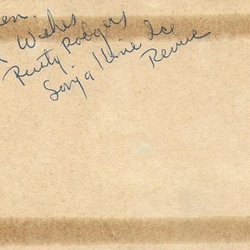 en.
Wishes
Rusty Rodgers
Sonja Henie Ice
Revue